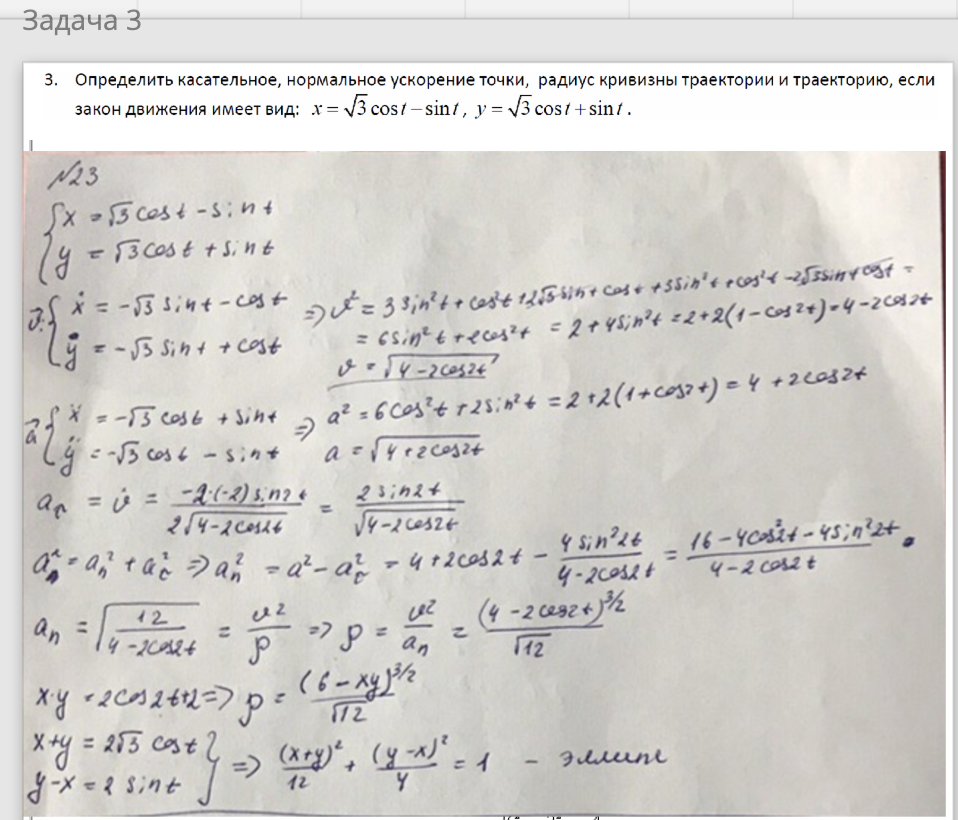 Задача 3
3. Определить касательное, нормальное ускорение точки, радиус кривизны траектории и траекторию, если
закон движения имеет вид: x = √3 cos t − sin t, y = √3 cos t + sin t.
№23
{ x = √3 cos t - sin t
y = √3 cos t + sin t
v⃗: { ẋ = -√3 sin t - cos t ⇒ v² = 3 sin²t + cos²t + 2√3 sin t cos t + 3 sin²t + cos²t - 2√3 sin t cos t =
ẏ = -√3 sin t + cos t = 6 sin²t + 2 cos²t = 2 + 4 sin²t = 2 + 2(1 - cos 2t) = 4 - 2 cos 2t
v = √(4 - 2 cos 2t)
a⃗ { ẍ = -√3 cos t + sin t ⇒ a² = 6 cos²t + 2 sin²t = 2 + 2(1 + cos 2t) = 4 + 2 cos 2t
ÿ = -√3 cos t - sin t a = √(4 + 2 cos 2t)
a_τ = v̇ = -2·(-2) sin 2t / 2√(4 - 2 cos 2t) = 2 sin 2t / √(4 - 2 cos 2t)
a² = a_n² + a_τ² ⇒ a_n² = a² - a_τ² = 4 + 2 cos 2t - 4 sin²2t / (4 - 2 cos 2t) = (16 - 4 cos²2t - 4 sin²2t) / (4 - 2 cos 2t)
a_n = √(12 / (4 - 2 cos 2t)) = v²/ρ ⇒ ρ = v²/a_n = (4 - 2 cos 2t)^3/2 / √12
x·y = 2 cos 2t + 2 ⇒ ρ = (6 - xy)^3/2 / √12
x + y = 2√3 cos t } ⇒ (x+y)²/12 + (y-x)²/4 = 1 - эллипс
y - x = 2 sin t